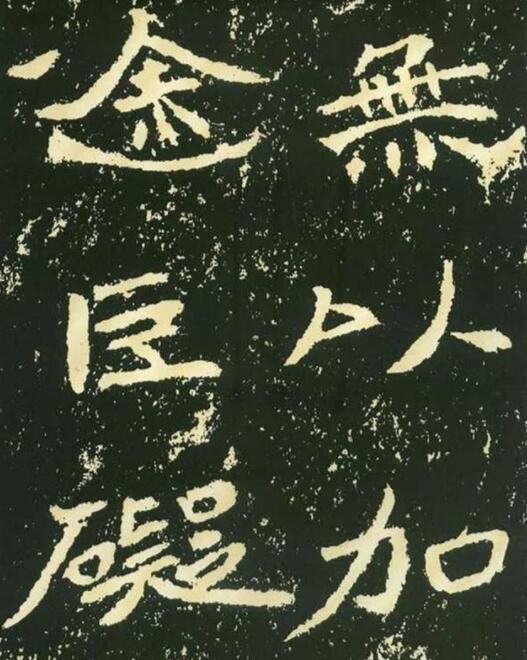 無以加
途巨礙